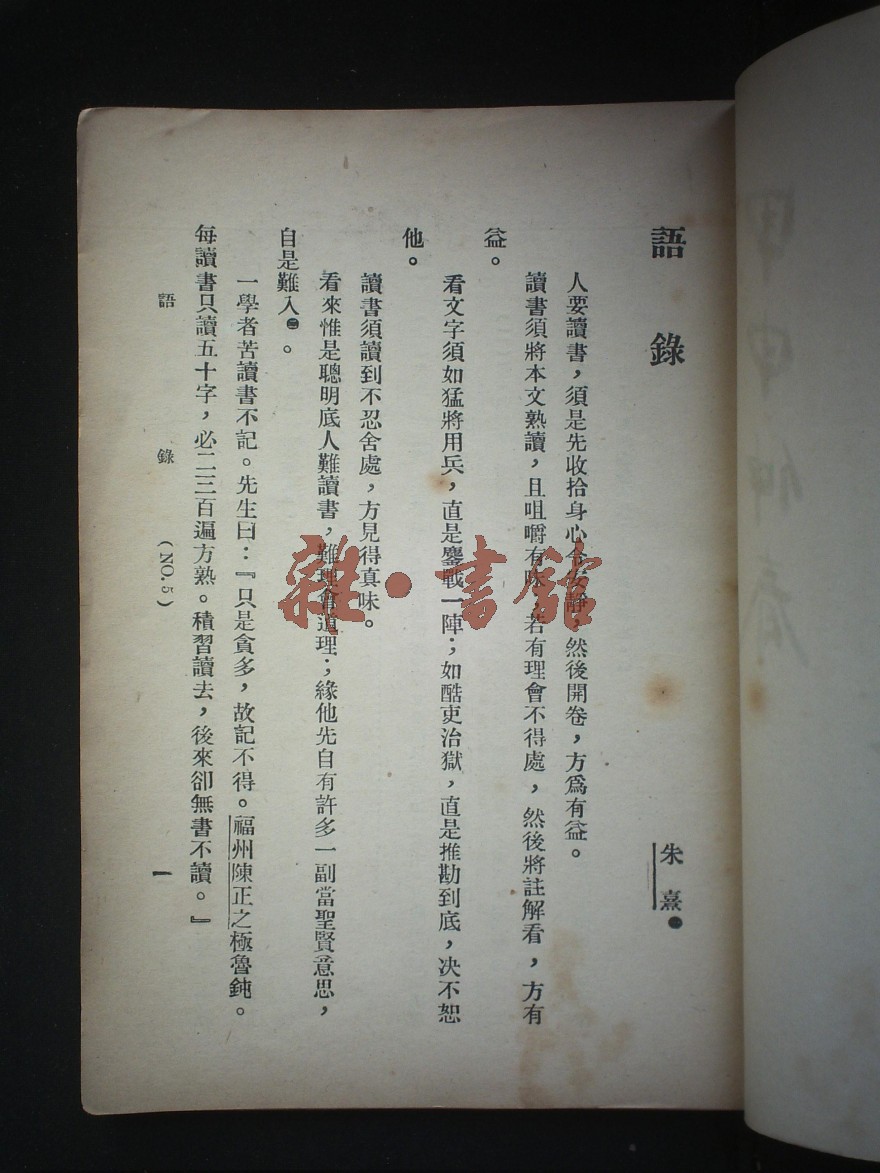 語錄
朱熹㊀
人要讀書，須是先收拾身心令安靜，然後開卷，方爲有益。
讀書須將本文熟讀，且咀嚼有味，若有理會不得處，然後將註解看，方有
益。
看文字須如猛將用兵，直是鏖戰一陣；如酷吏治獄，直是推勘到底，决不恕
他。
讀書須讀到不忍舍處，方見得真味。
看來惟是聰明底人難讀書，難理會道理；緣他先自有許多一副當聖賢意思，
自是難入㊁。
一學者苦讀書不記。先生曰：『只是貪多，故記不得。福州陳正之極魯鈍。
每讀書只讀五十字，必二三百遍方熟。積習讀去，後來卻無書不讀。』
語錄 (NO.5) 一
雜·書館